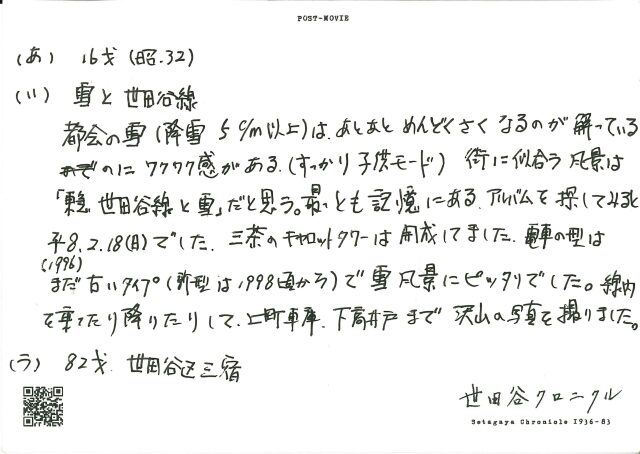 POST-MOVIE
(あ) 16才 (昭.32)
(い) 雪と世田谷線
都会の雪(降雪5c/m以上)は、あとあとめんどくさくなるのが解っている
のにワクワク感がある.(すっかり子供モード) 街に似合う風景は
世田谷線と雪」だと思う。最っとも記憶にある.アルバムを探してみると
平8.2.18(日)でした.三茶のキャロットタワーは完成してました.電車の型は
(1996)
まだ古いタイプ(新型は1998頃から)で雪風景にピッタリでした。線内
を乗ったり降りたりして、上町車庫、下高井戸まで沢山の写真を撮りました。
(う) 82才.世田谷区三宿
世田谷クロニクル
Setagaya Chronicle 1936-83